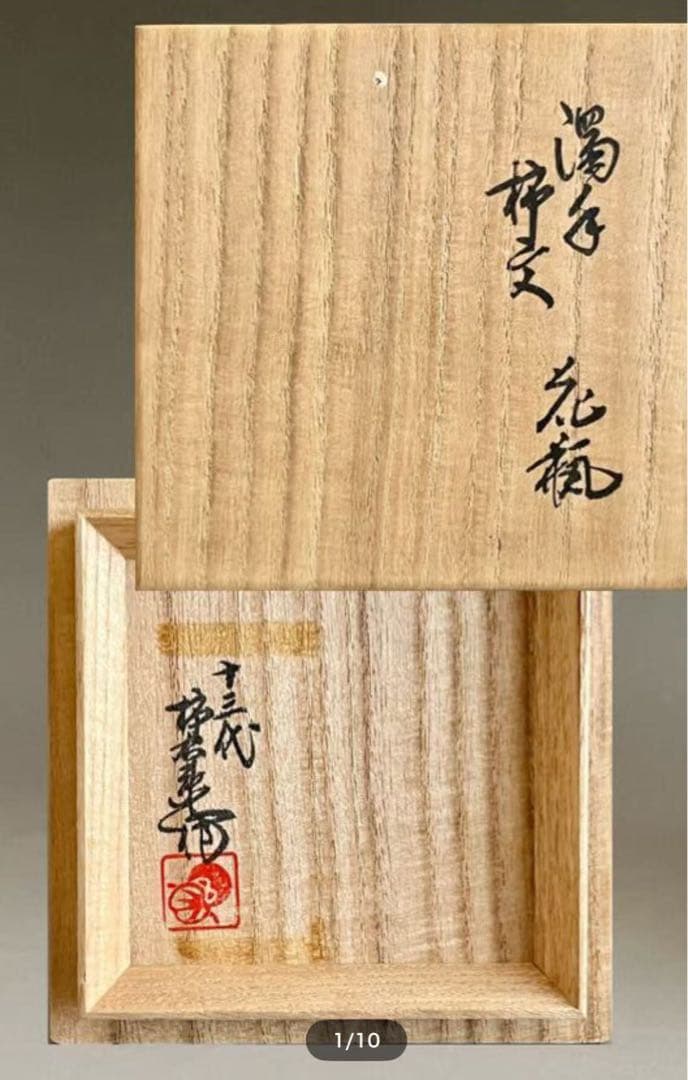 濁手
柿文
花瓶
十三代
柿右衛門作
1/10